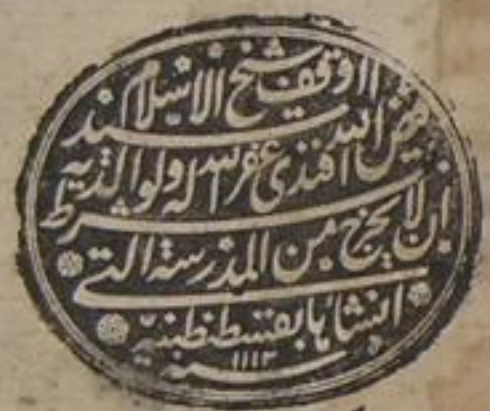 وقف شيخ الاسلام السيد
فيض الله افندى غفر الله له ولوالديه
بشرط ان لا يخرج من المدرسة التى
انشاها بقسطنطنيه
سنه ١١١٣